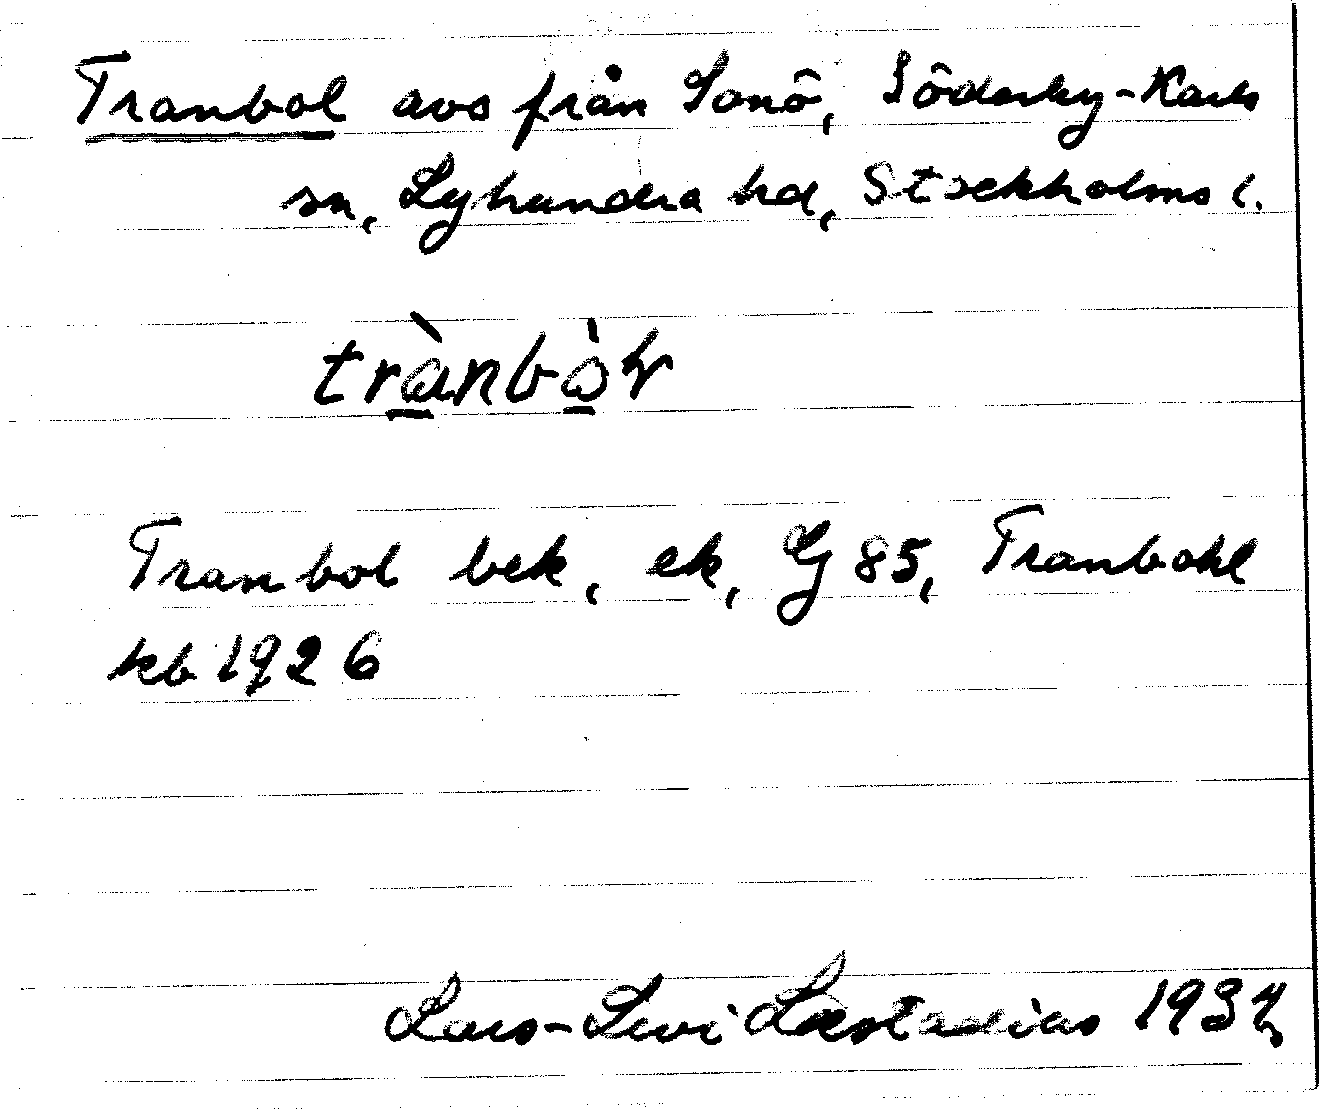 Tranbol avs från Sonö, Söderby-Karls
sn, Lyhundra hd, Stockholms l.
trànbòł
Tranbol bek, ek, GJ 85, Tranbohl
kb 1926
Lars-Levi Læstadius 1934